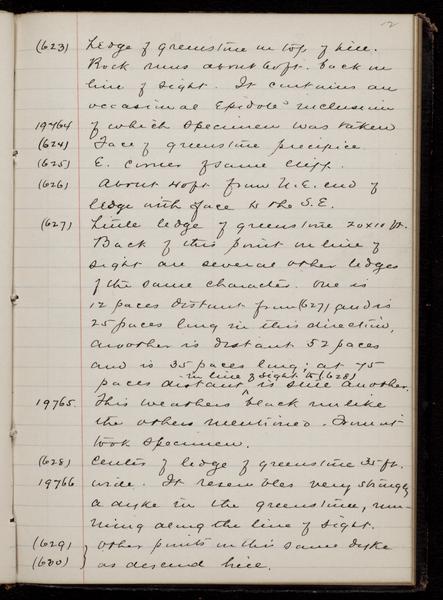 12
(623) Ledge of greenstone on top of hill.
Rock runs about 60 ft. back in
line of sight. It contains an
occasional Epidote inclusion
19764 of which specimen was taken
(624) Face of greenstone precipice
(625) E. corner of same cliff.
(626) About 40 ft from N.E. end of
ledge with face to the S.E.
(627) Little ledge of greenstone 20x10 ft.
Back of this point in line of
sight are several other ledges
of the same character. One is
12 paces distant from (627) and is
25 paces long in this direction,
another is distant 52 paces
and is 35 paces long; at 75
in line of sight to (628)
paces distant ^ is still another.
19765. This weathers black unlike
the others mentioned. From it
took specimen.
(628) Center of ledge of greenstone 35 ft.
19766 wide. It resembles very strongly
a dyke in the greenstone, run-
ning along the line of sight.
(629) other points in this same dyke
(630) as descend hill.